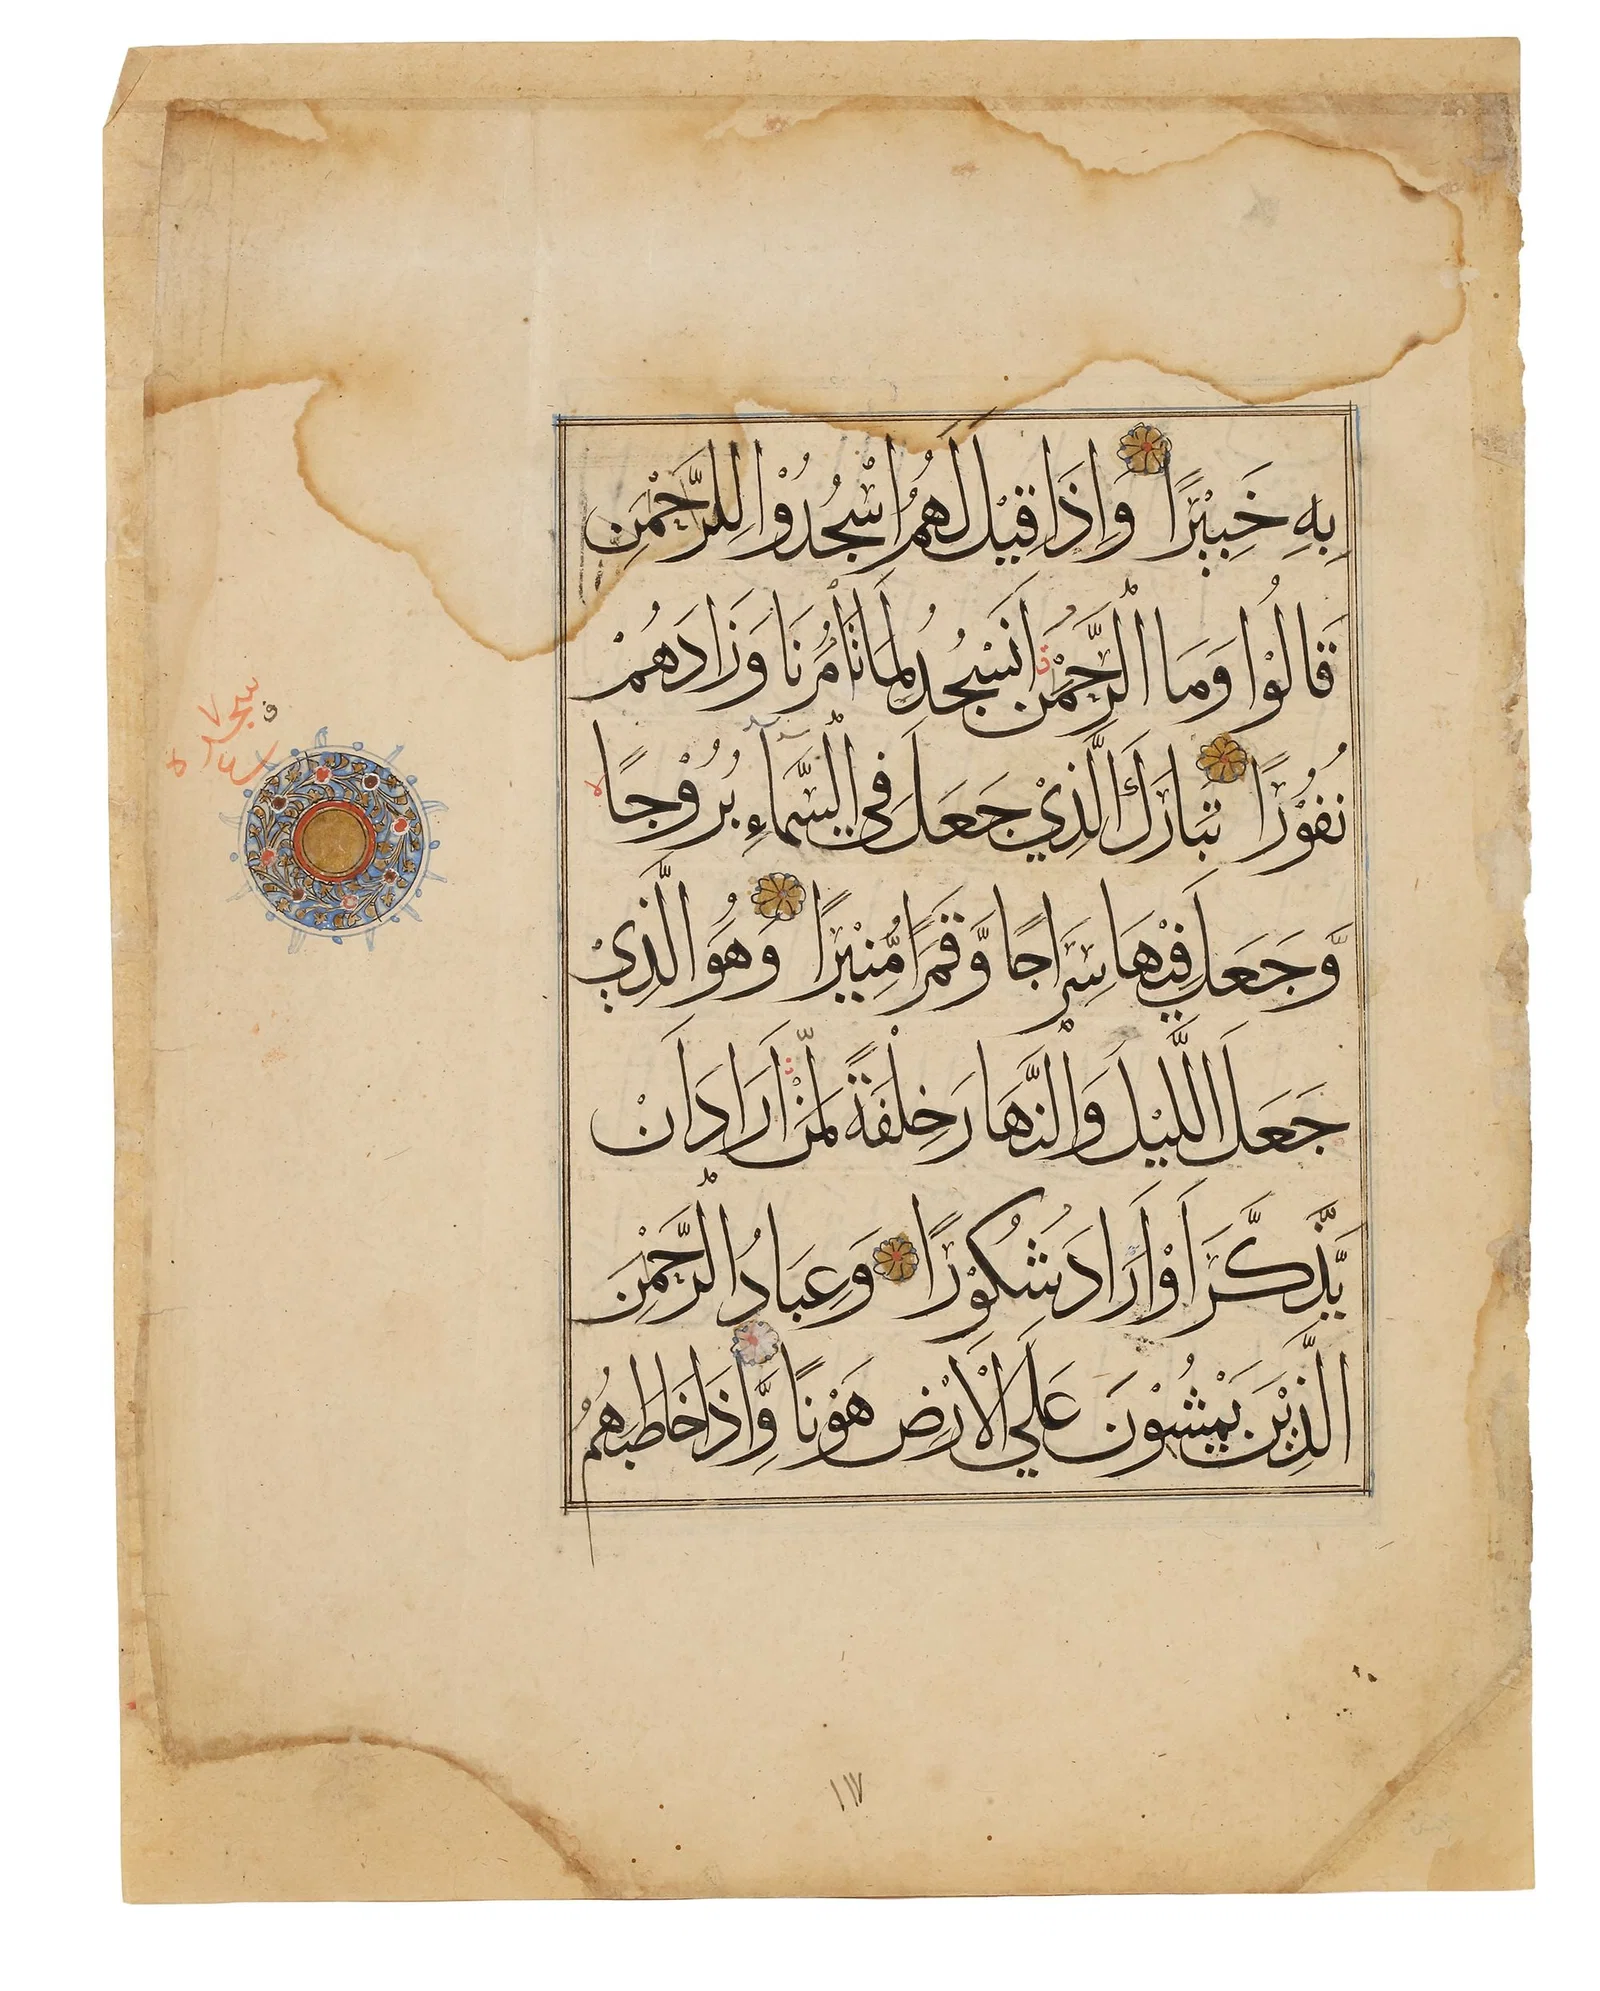 بِهِ خَبِيْرًا وَاِذَا قِيْلَ لَهُمُ اسْجُدُوْا لِلرَّحْمٰنِ
قَالُوْا وَمَا الرَّحْمٰنُ اَنَسْجُدُ لِمَا تَاْمُرُنَا وَزَادَهُمْ
نُفُوْرًا تَبَارَكَ الَّذِيْ جَعَلَ فِي السَّمَاۤءِ بُرُوْجًا
وَّجَعَلَ فِيْهَا سِرَاجًا وَّقَمَرًا مُّنِيْرًا وَهُوَ الَّذِيْ
جَعَلَ اللَّيْلَ وَالنَّهَارَ خِلْفَةً لِّمَنْ اَرَادَ اَنْ
يَّذَّكَّرَ اَوْ اَرَادَ شُكُوْرًا وَعِبَادُ الرَّحْمٰنِ
الَّذِيْنَ يَمْشُوْنَ عَلَي الْاَرْضِ هَوْنًا وَّاِذَا خَاطَبَهُمُ
سجده
١١٧